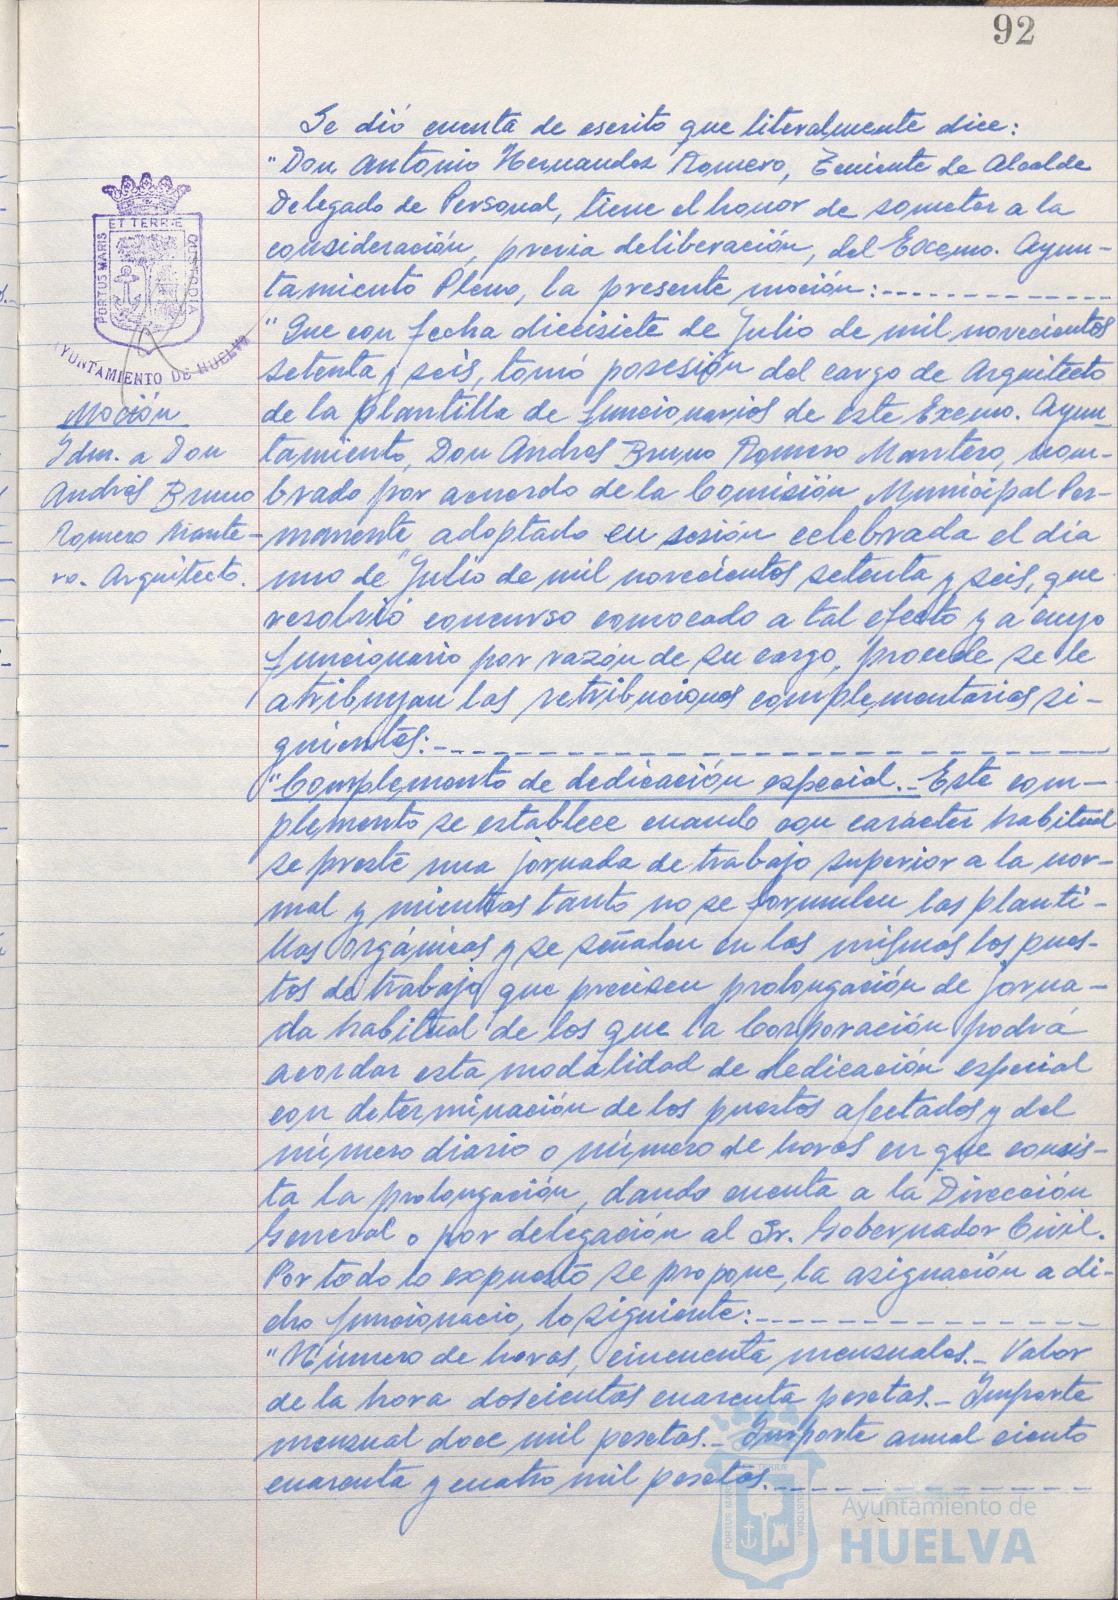 92
Se dió cuenta de escrito que literalmente dice:
"Don Antonio Hernandez Romero, Teniente de Alcalde
Delegado de Personal, tiene el honor de someter a la
consideración, previa deliberación, del Excmo. Ayun-
tamiento Pleno, la presente moción:
"Que con fecha diecisiete de Julio de mil novecientos
setenta y seis, tomó posesión del cargo de Arquitecto
de la plantilla de funcionarios de este Excmo. Ayun-
tamiento, Don Andres Bruno Romero Montero, nom-
brado por acuerdo de la Comisión Municipal Per-
manente adoptado en sesión celebrada el día
uno de Julio de mil novecientos setenta y seis, que
resolvió concurso convocado a tal efecto y a cuyo
funcionario por razón de su cargo, procede se le
atribuyan las retribuciones complementarias si-
guientes:
"Complemento de dedicación especial.- Este com-
plemento se establece cuando con carácter habitual
se preste una jornada de trabajo superior a la nor-
mal y mientras tanto no se formulen las planti-
llas orgánicas y se señalen en las mismas los pues-
tos de trabajo que precisen prolongación de jorna-
da habitual de los que la Corporación podrá
acordar esta modalidad de dedicación especial
con determinación de los puestos afectados y del
número diario o número de horas en que consis-
ta la prolongación, dando cuenta a la Dirección
General o por delegación al Sr. Gobernador Civil.
Por todo lo expuesto se propone, la asignación a di-
cho funcionario, lo siguiente:
"Número de horas, cincuenta mensuales.- Valor
de la hora doscientas cuarenta pesetas.- Importe
mensual doce mil pesetas.- Importe anual ciento
cuarenta y cuatro mil pesetas.
PORTUS MARIS ET TERRÆ CUSTODIA
AYUNTAMIENTO DE HUELVA
Moción
Idm. a Don
Andrés Bruno
Romero Monte-
ro. Arquitecto.
PORTUS MARIS ET TERRÆ CUSTODIA
Ayuntamiento de
HUELVA